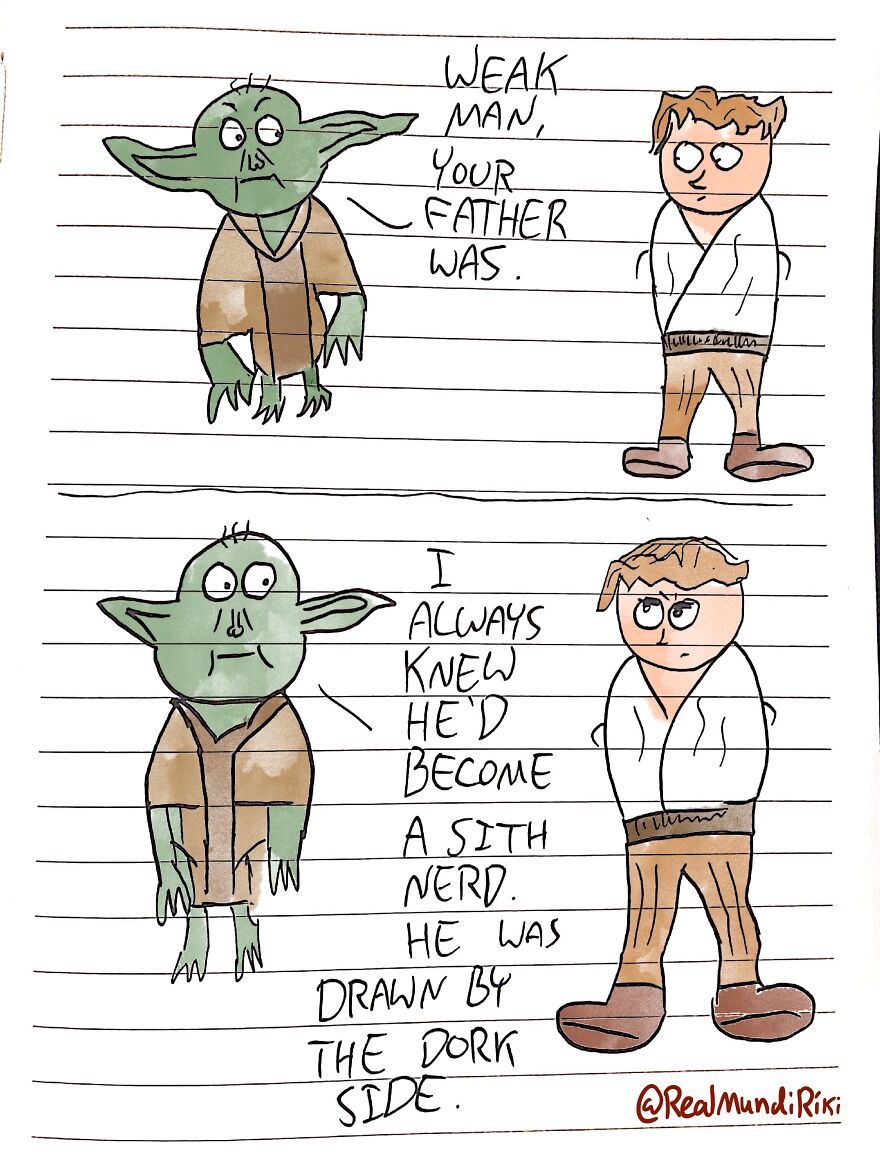 WEAK
MAN,
YOUR
FATHER
WAS.
I
ALWAYS
KNEW
HE'D
BECOME
A SITH
NERD.
HE WAS
DRAWN BY
THE DORK
SIDE.
@RealMundiRiki